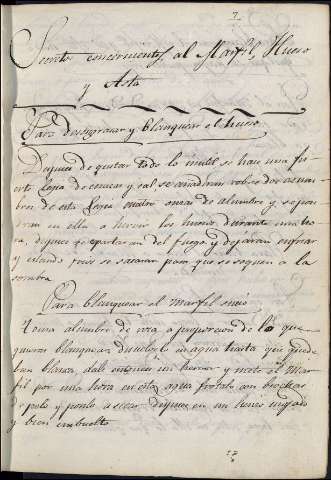 Secretos concernientes al Marfil, Hueso
y Asta
Para desengrasar y blanquear el hueso
Despues de quitar todo lo inutil se hace una fu-
erte legia de cenizas y sal se añadiran sobre dos azum-
bres de esta legia cuatro onzas de alumbre y se pon-
dran en ella a hervir los huesos durante una ho-
ra, despues se apartaran del fuego y dejaran enfriar
y estando frios se sacaran para que se sequen a la
sombra
Para blanquear el marfil
Toma alumbre de roca a proporcion de lo que
quieras blanquear, disuelvelo en agua hasta que quede
bien blanca, dale enseguida un hervor y mete el Mar-
fil por una hora en esta agua frotalo con brochas
de pelo y ponlo a secar despues en un lienzo mojado
y bien embuelto